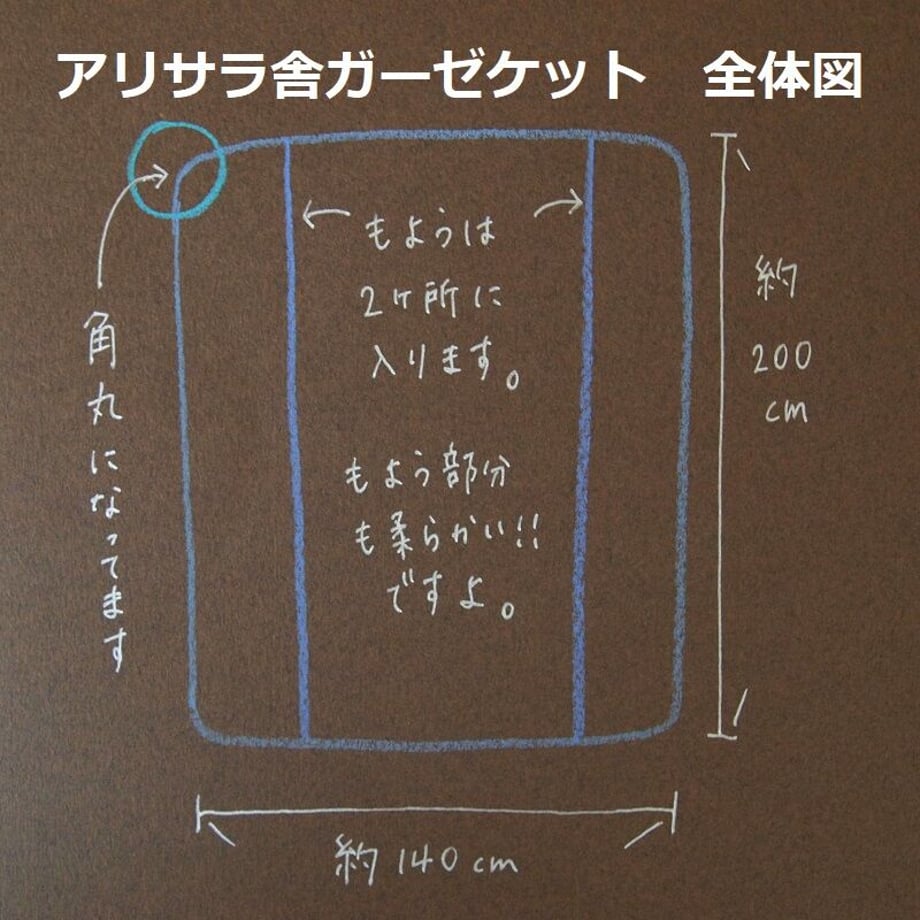 アリサラ舎ガーゼケット 全体図
角丸になってます
もようは
2ヶ所に
入ります。
もよう部分
も柔らかい!!
ですよ。
約
200
cm
約140cm